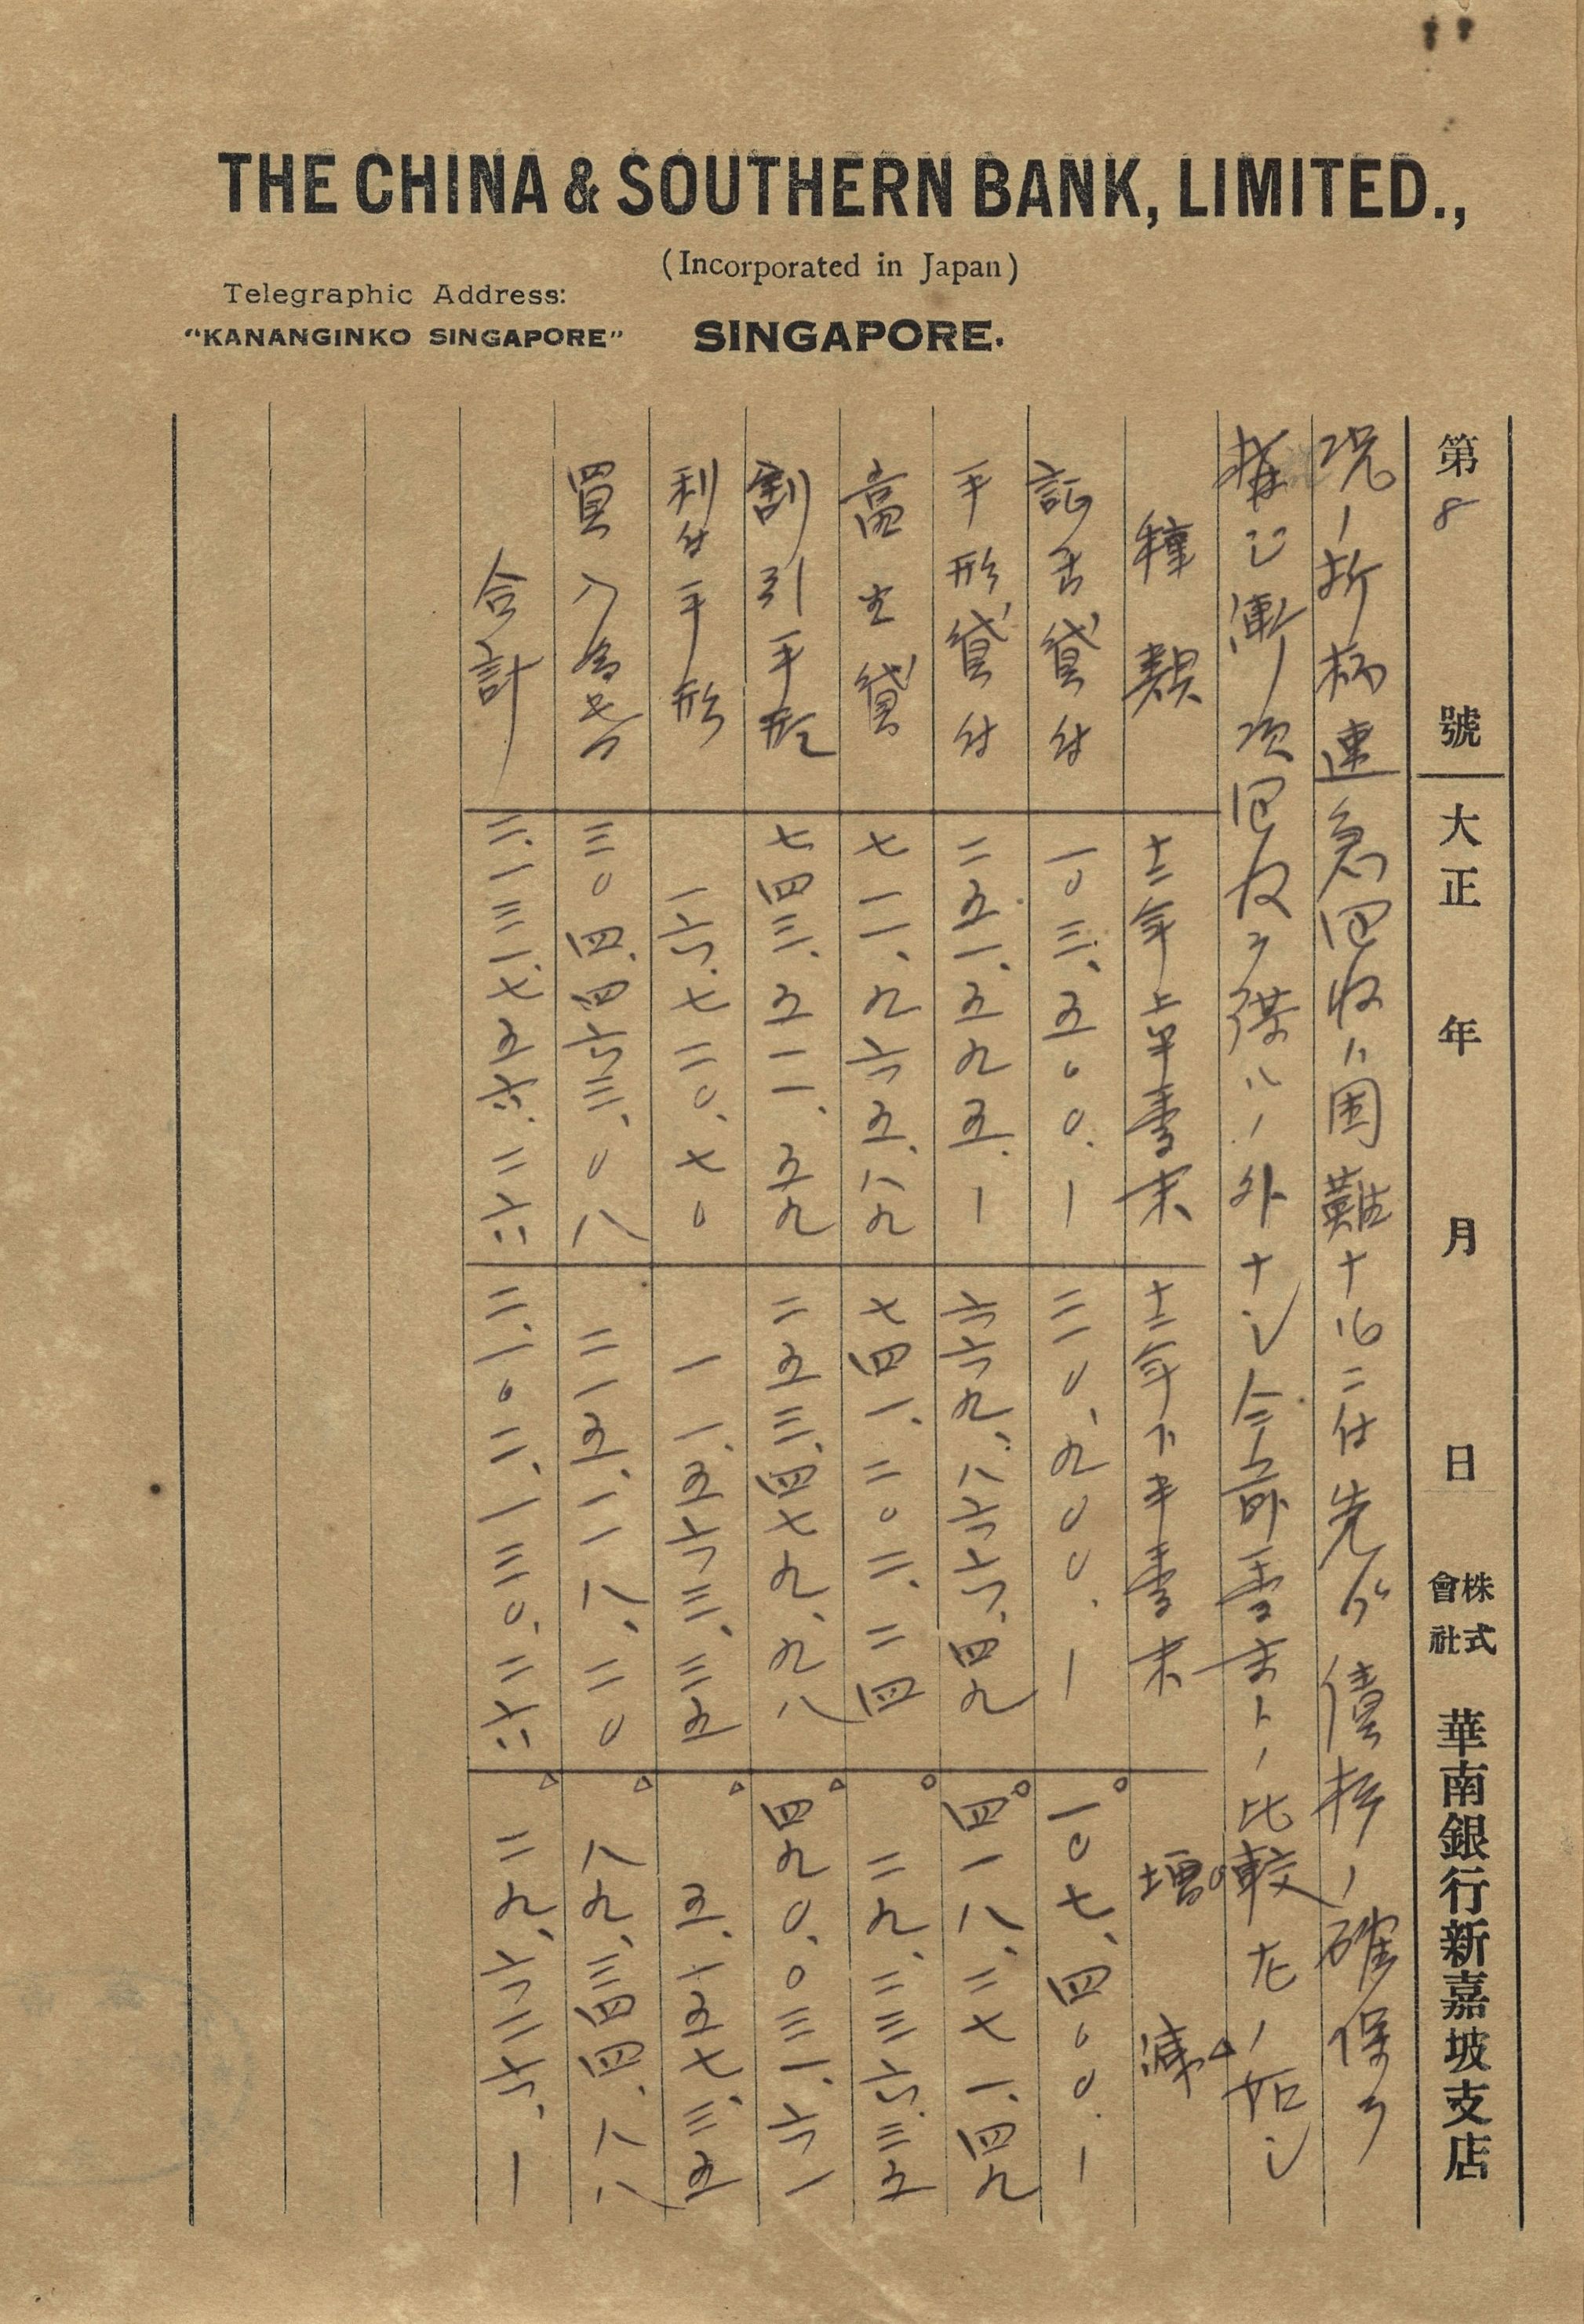 THE CHINA & SOUTHERN BANK, LIMITED.,
(Incorporated in Japan)
Telegraphic Address:
"KANANGINKO SINGAPORE"
SINGAPORE.
第8號 大正 年 月 日 株式會社 華南銀行新嘉坡支店
況ノ折柄速急回收ハ困難ナルニ付先ヅ債権ノ確保ヲ
講シ漸次回收ヲ謀ルノ外ナシ今前季末トノ比較左ノ如シ
種類 十二年上半季末 十二年下半季末 増○ 減△
証書貸付 一〇三、五〇〇.ー 二一〇、九〇〇.ー ○一〇七、四〇〇.ー
手形貸付 二五一、五九五.ー 六六九、八六六、四九 ○四一八、二七一、四九
當座貸 七一一、九六五、八九 七四一、二〇二、二四 ○二九、二三六、三五
割引手形 七四三、五一一、五九 二五三、四七九、九八 △四九〇、〇三一、六一
利付手形 一六、七二〇、七〇 一一、五六三、三五 △五、一五七、三五
買入為替 三〇四、四六三、〇八 二一五、一一八、二〇 △八九、三四四、八八
合計 二、一三一、七五六、二六 二、一〇二、一三〇、二六 △二九、六二六、ー